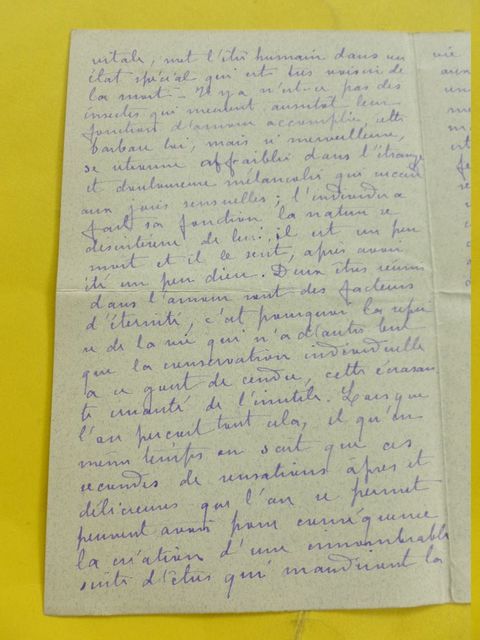 vitale, met l'être humain dans un
état spécial qui est très voisin de
la mort – Il y a n'est-ce pas des
insectes qui meurent aussitôt leur
fonction d'amour accomplie, cette
barbare loi, mais si merveilleuse,
se retrouve affaiblie dans l'étrange
et douloureuse mélancolie qui
aux joies sensuelles; l'individu a
fait sa fonction la nature se
désintéresse de lui, il est un peu
mort et il le sent, après avoir
été un peu dieu. Deux êtres réunis
dans l'amour sont des facteurs
d'éternité, c'est pourquoi la repri
se de la vie qui n'a d'autre but
que la conservation individuelle
a ce goût de cendre, cette écrasan
te cruauté de l'inutile. Lorsque
l'on perçoit tout cela, et qu'en
même temps on sait que ces
secondes de sensations âpres et
délicieuses que l'on se permet
peuvent avoir pour conséquence
la création d'une innombrable
suite d'êtres qui maudiront la
vie